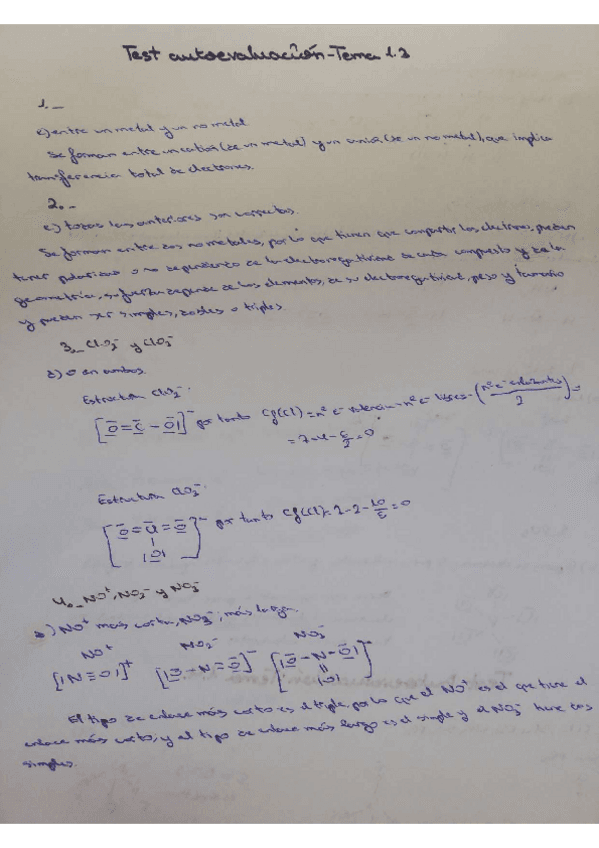 Test autoevaluación-Tema 1.2
1._
c) entre un metal y un no metal
Se forman entre un catión (de un metal) y un anión (de un no metal), que implica
transferencia total de electrones.
2._
e) todas las anteriores son correctas.
Se forman entre dos no metales, por lo que tienen que compartir los electrones, pueden
tener polaridad o no dependiendo de la electronegatividad de cada compuesto y de la
geometría, su fuerza depende de los elementos, de su electronegatividad, peso y tamaño
y pueden ser simples, dobles o triples.
3._ ClO2- y ClO3-
d) 0 en ambos.
Estructura ClO2-:
por tanto Cf(Cl) = nº e- valencia - nº e- libres - (nº e- enlazantes / 2) =
= 7-4- = 0
Estructura ClO3-:
por tanto Cf(Cl) = 7-2-10/2 = 0
4._ NO+, NO2- y NO3-
NO+ más corta, NO3-; más larga.
NO+ NO2- NO3-
[|N≡O|]+ [|O-N=O]- [|O-N-O|]-
||
|O|
El tipo de enlace más corto es el triple, por lo que el NO+ es el que tiene el
enlace más corto, y el tipo de enlace más largo es el simple y el NO3- tiene dos
simples.